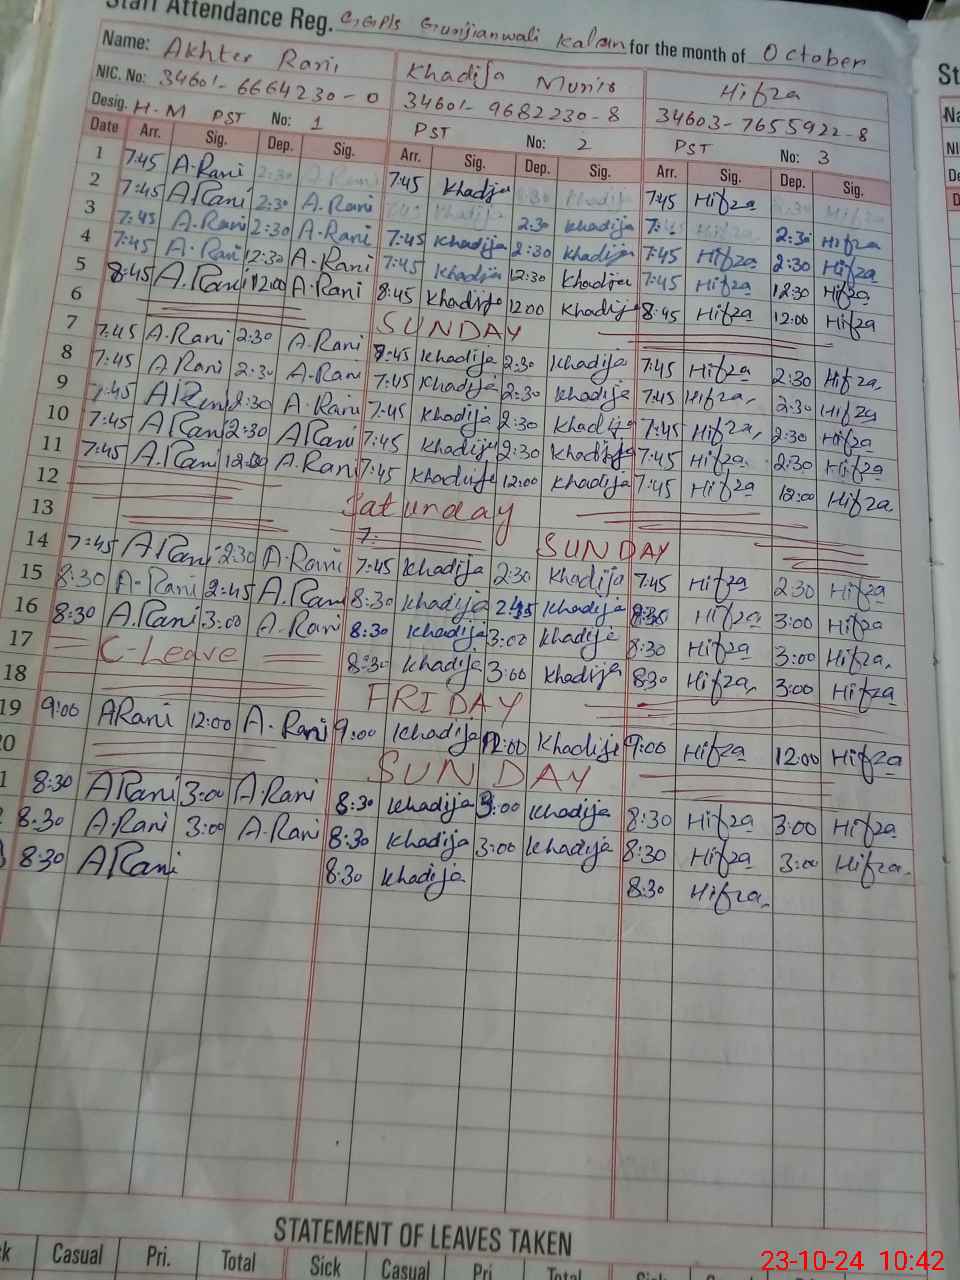 Staff Attendance Reg. G.GPls Gunjianwali Kalan for the month of October
Name: Akhter Rani Khadija Munir Hifza
NIC. No: 34601-6664230-0 34601-9682230-8 34603-7655922-8
Desig. H-M PST No: 1 PST No: 2 PST No: 3
Date Arr. Sig. Dep. Sig. Arr. Sig. Dep. Sig. Arr. Sig. Dep. Sig.
1 7:45 A.Rani 2:30 A.Rani 7:45 Khadija 2:30 Khadija 7:45 Hifza 2:30 Hifza
2 7:45 A.Rani 2:30 A.Rani 7:45 Khadija 2:30 Khadija 7: 2:30 Hifza
3 7:45 A.Rani 2:30 A.Rani 7:45 Khadija 2:30 Khadija 7:45 Hifza 2:30 Hifza
4 7:45 A.Rani 12:30 A.Rani 7:45 Khadija 12:30 Khadija 7:45 Hifza 12:30 Hifza
5 8:45 A.Rani 12:00 A.Rani 8:45 Khadija 12:00 Khadija 8:45 Hifza 12:00 Hifza
6 SUNDAY
7 7:45 A.Rani 2:30 A.Rani 7:45 Khadija 2:30 Khadija 7:45 Hifza 2:30 Hifza
8 7:45 A.Rani 2:30 A.Rani 7:45 Khadija 2:30 Khadija 7:45 Hifza 2:30 Hifza
9 7:45 A.Rani 2:30 A.Rani 7:45 Khadija 2:30 Khadija 7:45 Hifza 2:30 Hifza
10 7:45 A.Rani 2:30 A.Rani 7:45 Khadija 2:30 Khadija 7:45 Hifza 2:30 Hifza
11 7:45 A.Rani 12:00 A.Rani 7:45 Khadija 12:00 Khadija 7:45 Hifza 12:00 Hifza
12 Saturday
13 7: SUNDAY
14 7:45 A.Rani 2:30 A.Rani 7:45 Khadija 2:30 Khadija 7:45 Hifza 2:30 Hifza
15 8:30 A.Rani 2:45 A.Rani 8:30 Khadija 2:45 Khadija 8:30 Hifza 3:00 Hifza
16 8:30 A.Rani 3:00 A.Rani 8:30 Khadija 3:00 Khadija 8:30 Hifza 3:00 Hifza
17 C-Leave 8:30 Khadija 3:00 Khadija 8:30 Hifza 3:00 Hifza
18 FRIDAY
19 9:00 A.Rani 12:00 A.Rani 9:00 Khadija 12:00 Khadija 9:00 Hifza 12:00 Hifza
20 SUNDAY
1 8:30 A.Rani 3:00 A.Rani 8:30 Khadija 3:00 Khadija 8:30 Hifza 3:00 Hifza
2 8:30 A.Rani 3:00 A.Rani 8:30 Khadija 3:00 Khadija 8:30 Hifza 3:00 Hifza
3 8:30 A.Rani 8:30 Khadija 8:30 Hifza
STATEMENT OF LEAVES TAKEN
Casual Pri. Total Sick Casual Pri. Total Sick
23-10-24 10:42